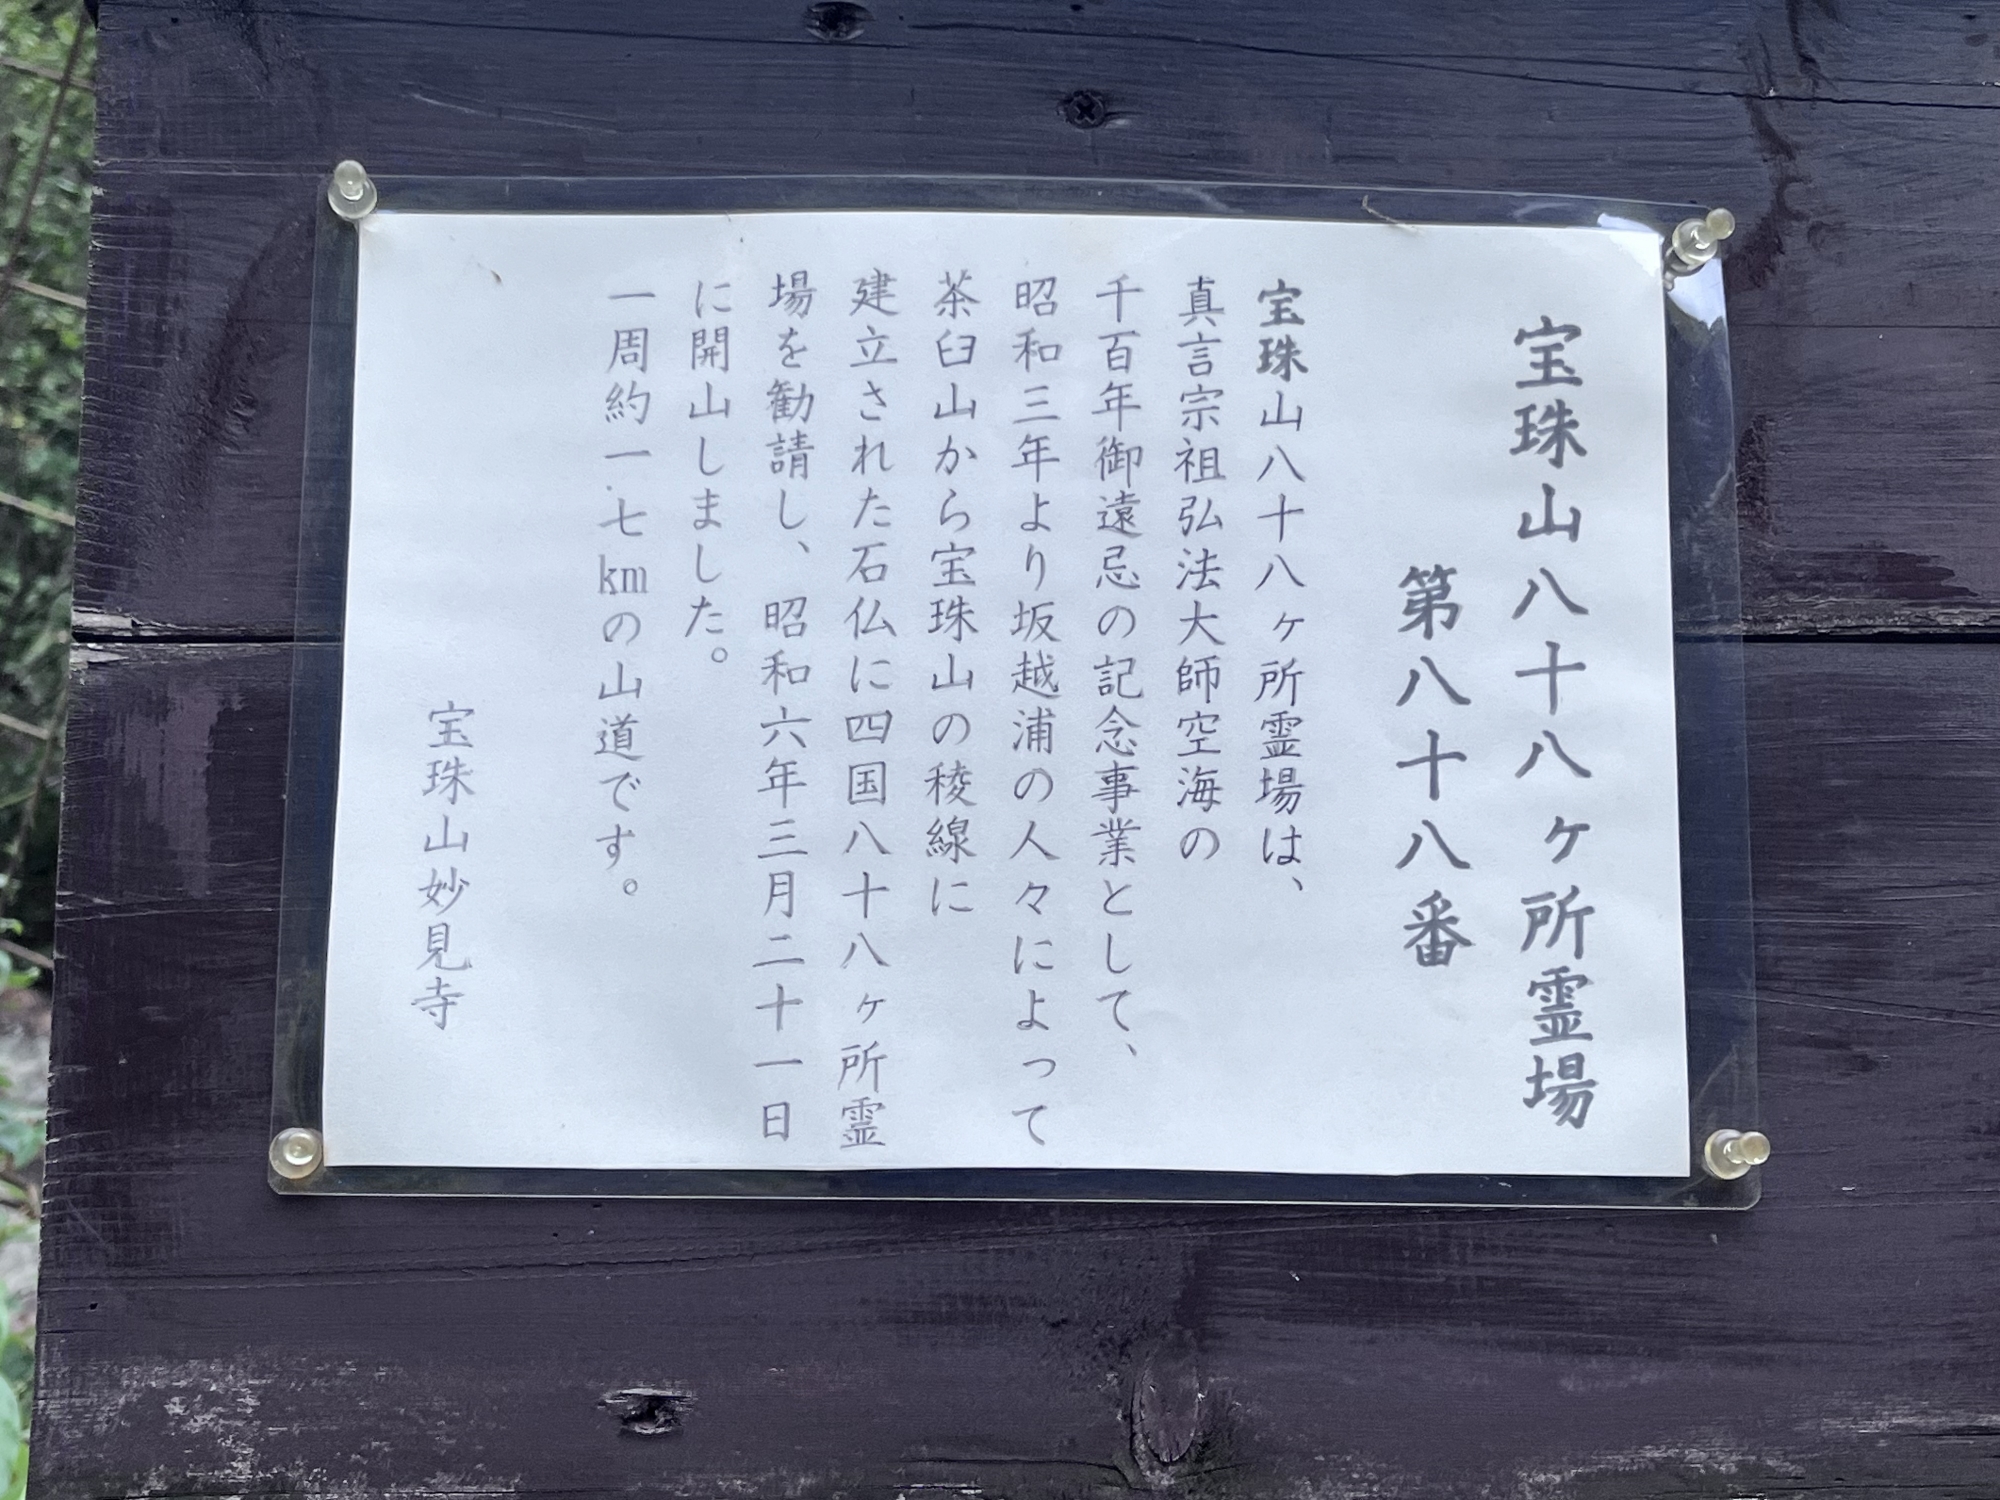 宝珠山八十八ヶ所霊場
第八十八番
宝珠山八十八ヶ所霊場は、
真言宗祖弘法大師空海の
千百年御遠忌の記念事業として、
昭和三年より坂越浦の人々によって
茶臼山から宝珠山の稜線に
建立された石仏に四国八十八ヶ所霊
場を勧請し、昭和六年三月二十一日
に開山しました。
一周約一.七kmの山道です。
宝珠山妙見寺